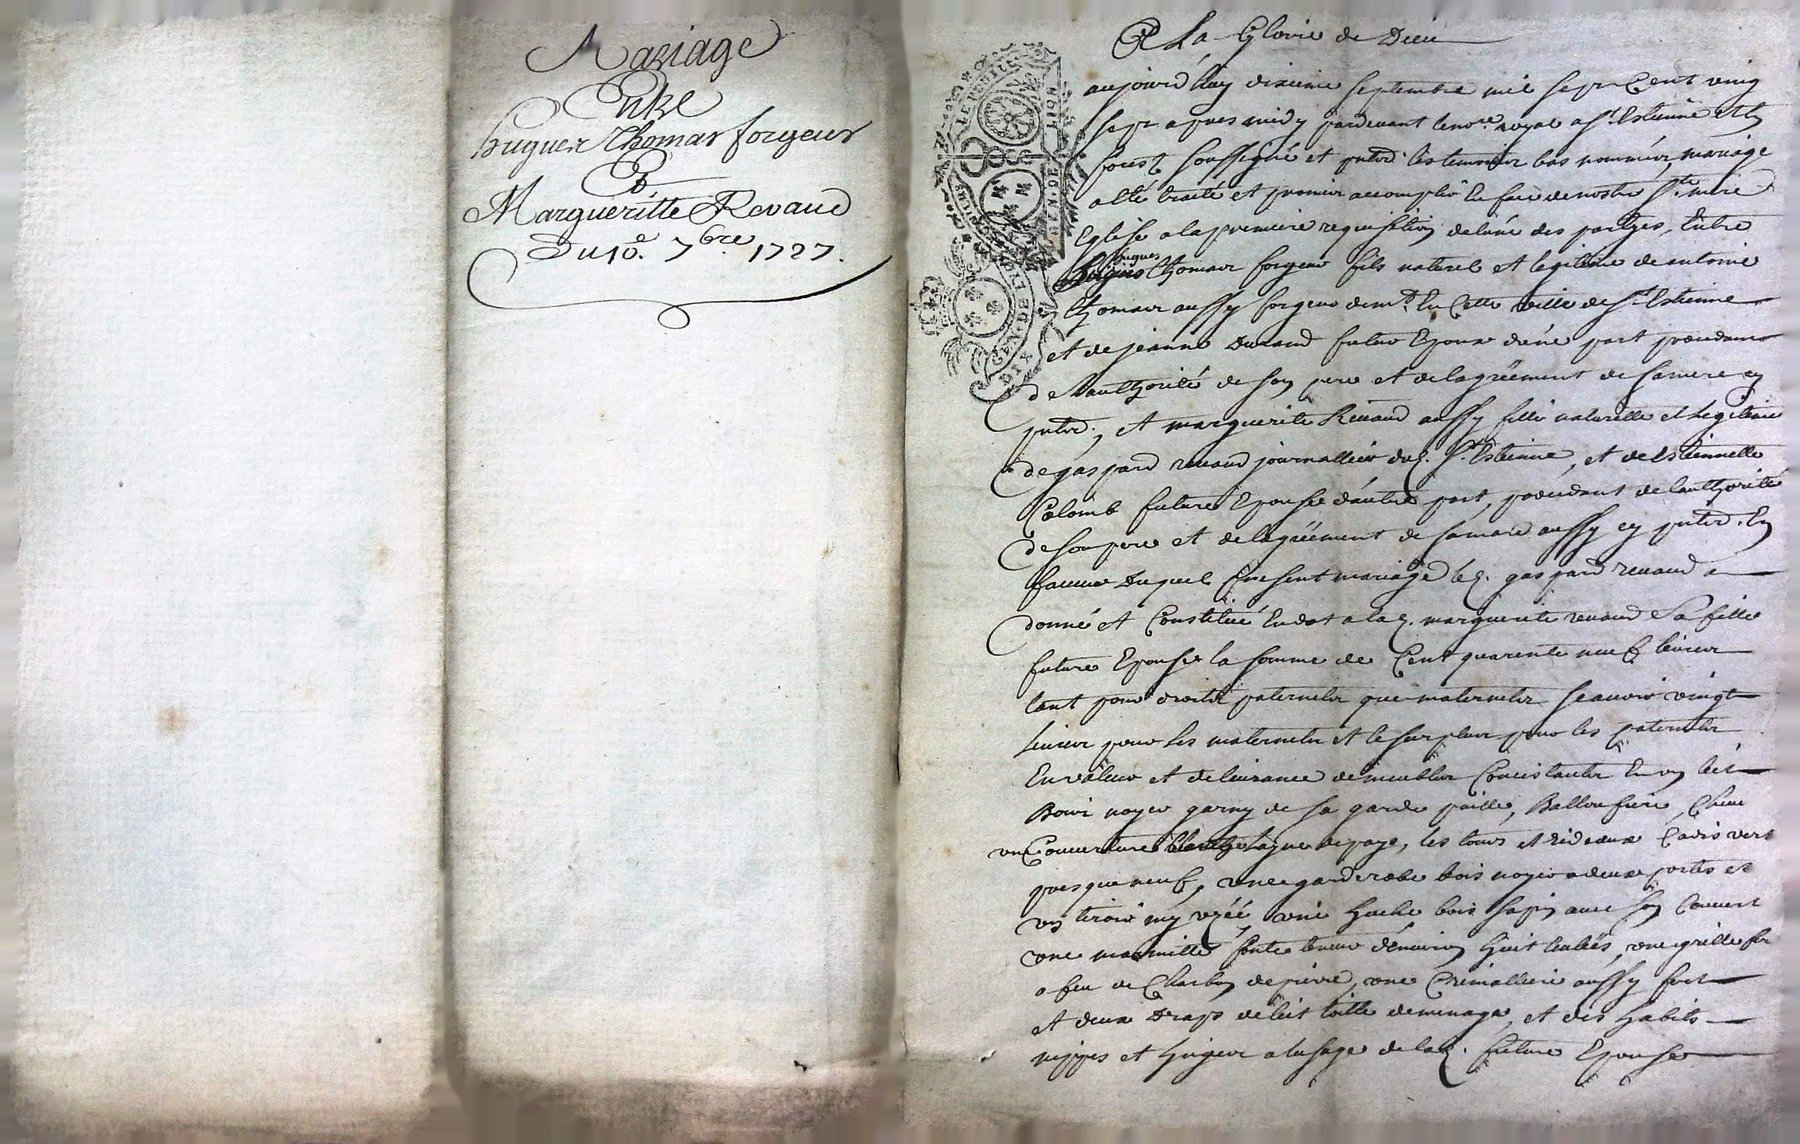 Mariage
Entre
hugues Thomas forgeur
Et
Margueritte Revaud
Du 10.e 7bre 1727.
A La Gloire de Dieu
aujourd'huy dixieme septembre mil sept Cent vingt
sept apres midy pardevant le nore. royal a St. Estienne En
forest soussigné et presents les temoins bas nommés, mariage
a été traité et promis accomplir En face de nostre Ste. mere
Eglise a la premiere requisition de l'une des parties, Entre
hugues Thomas forgeur fils naturel et legitime de antoine
Thomas aussy forgeur demt. En Cette ville de St. Estienne
et de jeanne Durand futur Epoux d'une part procedant
de l'authorité de son pere et de l'agréement de sa mere cy
presents, et marguerite Revaud aussy fille naturelle et legitime
de gaspard revaud journallier dud. St. Estienne, et de Estiennette
Colomb future Epouse d'autre part, procedant de l'authorité
de son pere et de l'agréement de sa mere aussy cy presents. En
faveur Duquel present mariage led. gaspard revaud a
donné et Constitué En dot a lad. marguerite revaud Sa fille
future Epouse la somme de Cent quarente neuf livres
tant pour droits paternels que maternels scavoir vingt
livres pour les maternels et le surplus pour les paternels
En valeur et delivrance de meubles Consistants En un lict
Bois noyer garny de sa garde paille, Ballouffiere, Chevet
un Couverture Blanche laynne de paÿs, les tours et rideaux Cadis vert
presque neuf, une garderobe bois noyer a deux portes et
un tiroir my usée une huche bois sapin avec son Couvert
une marmitte fonte teneur d'environ huit ecuelles, une grille fer
a feu de Charbon de pierre, une Cremalliere aussy fer
et deux Draps de lict toille de menage, et des habits
nippes et linges a l'usage de lad. future Epouse